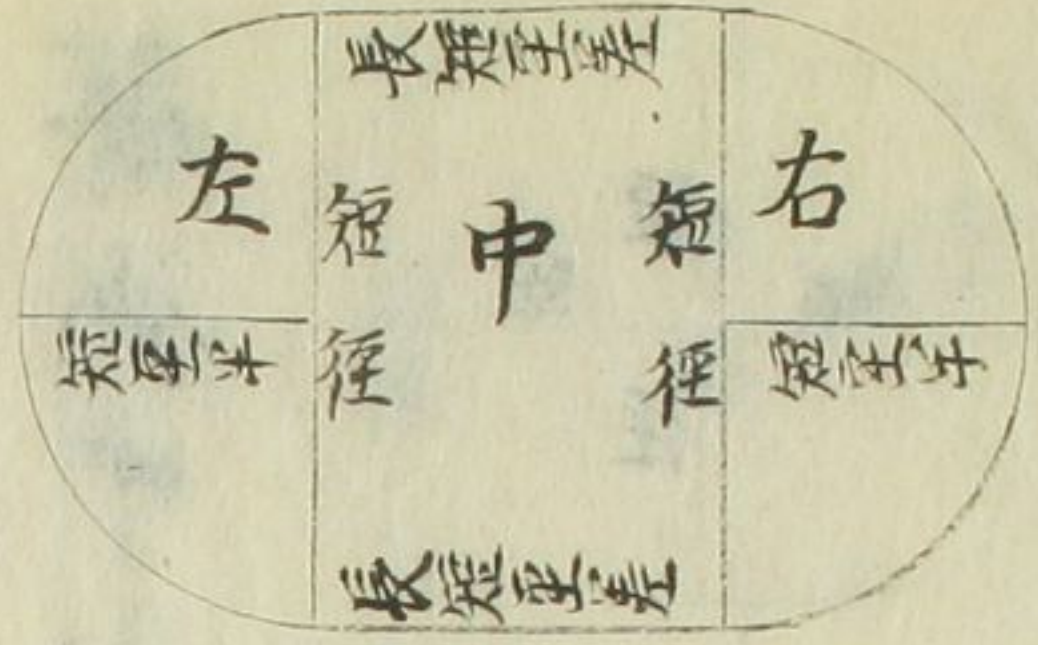 長短径差
左
中
右
短径
短径
短径半
短径半
長短径差